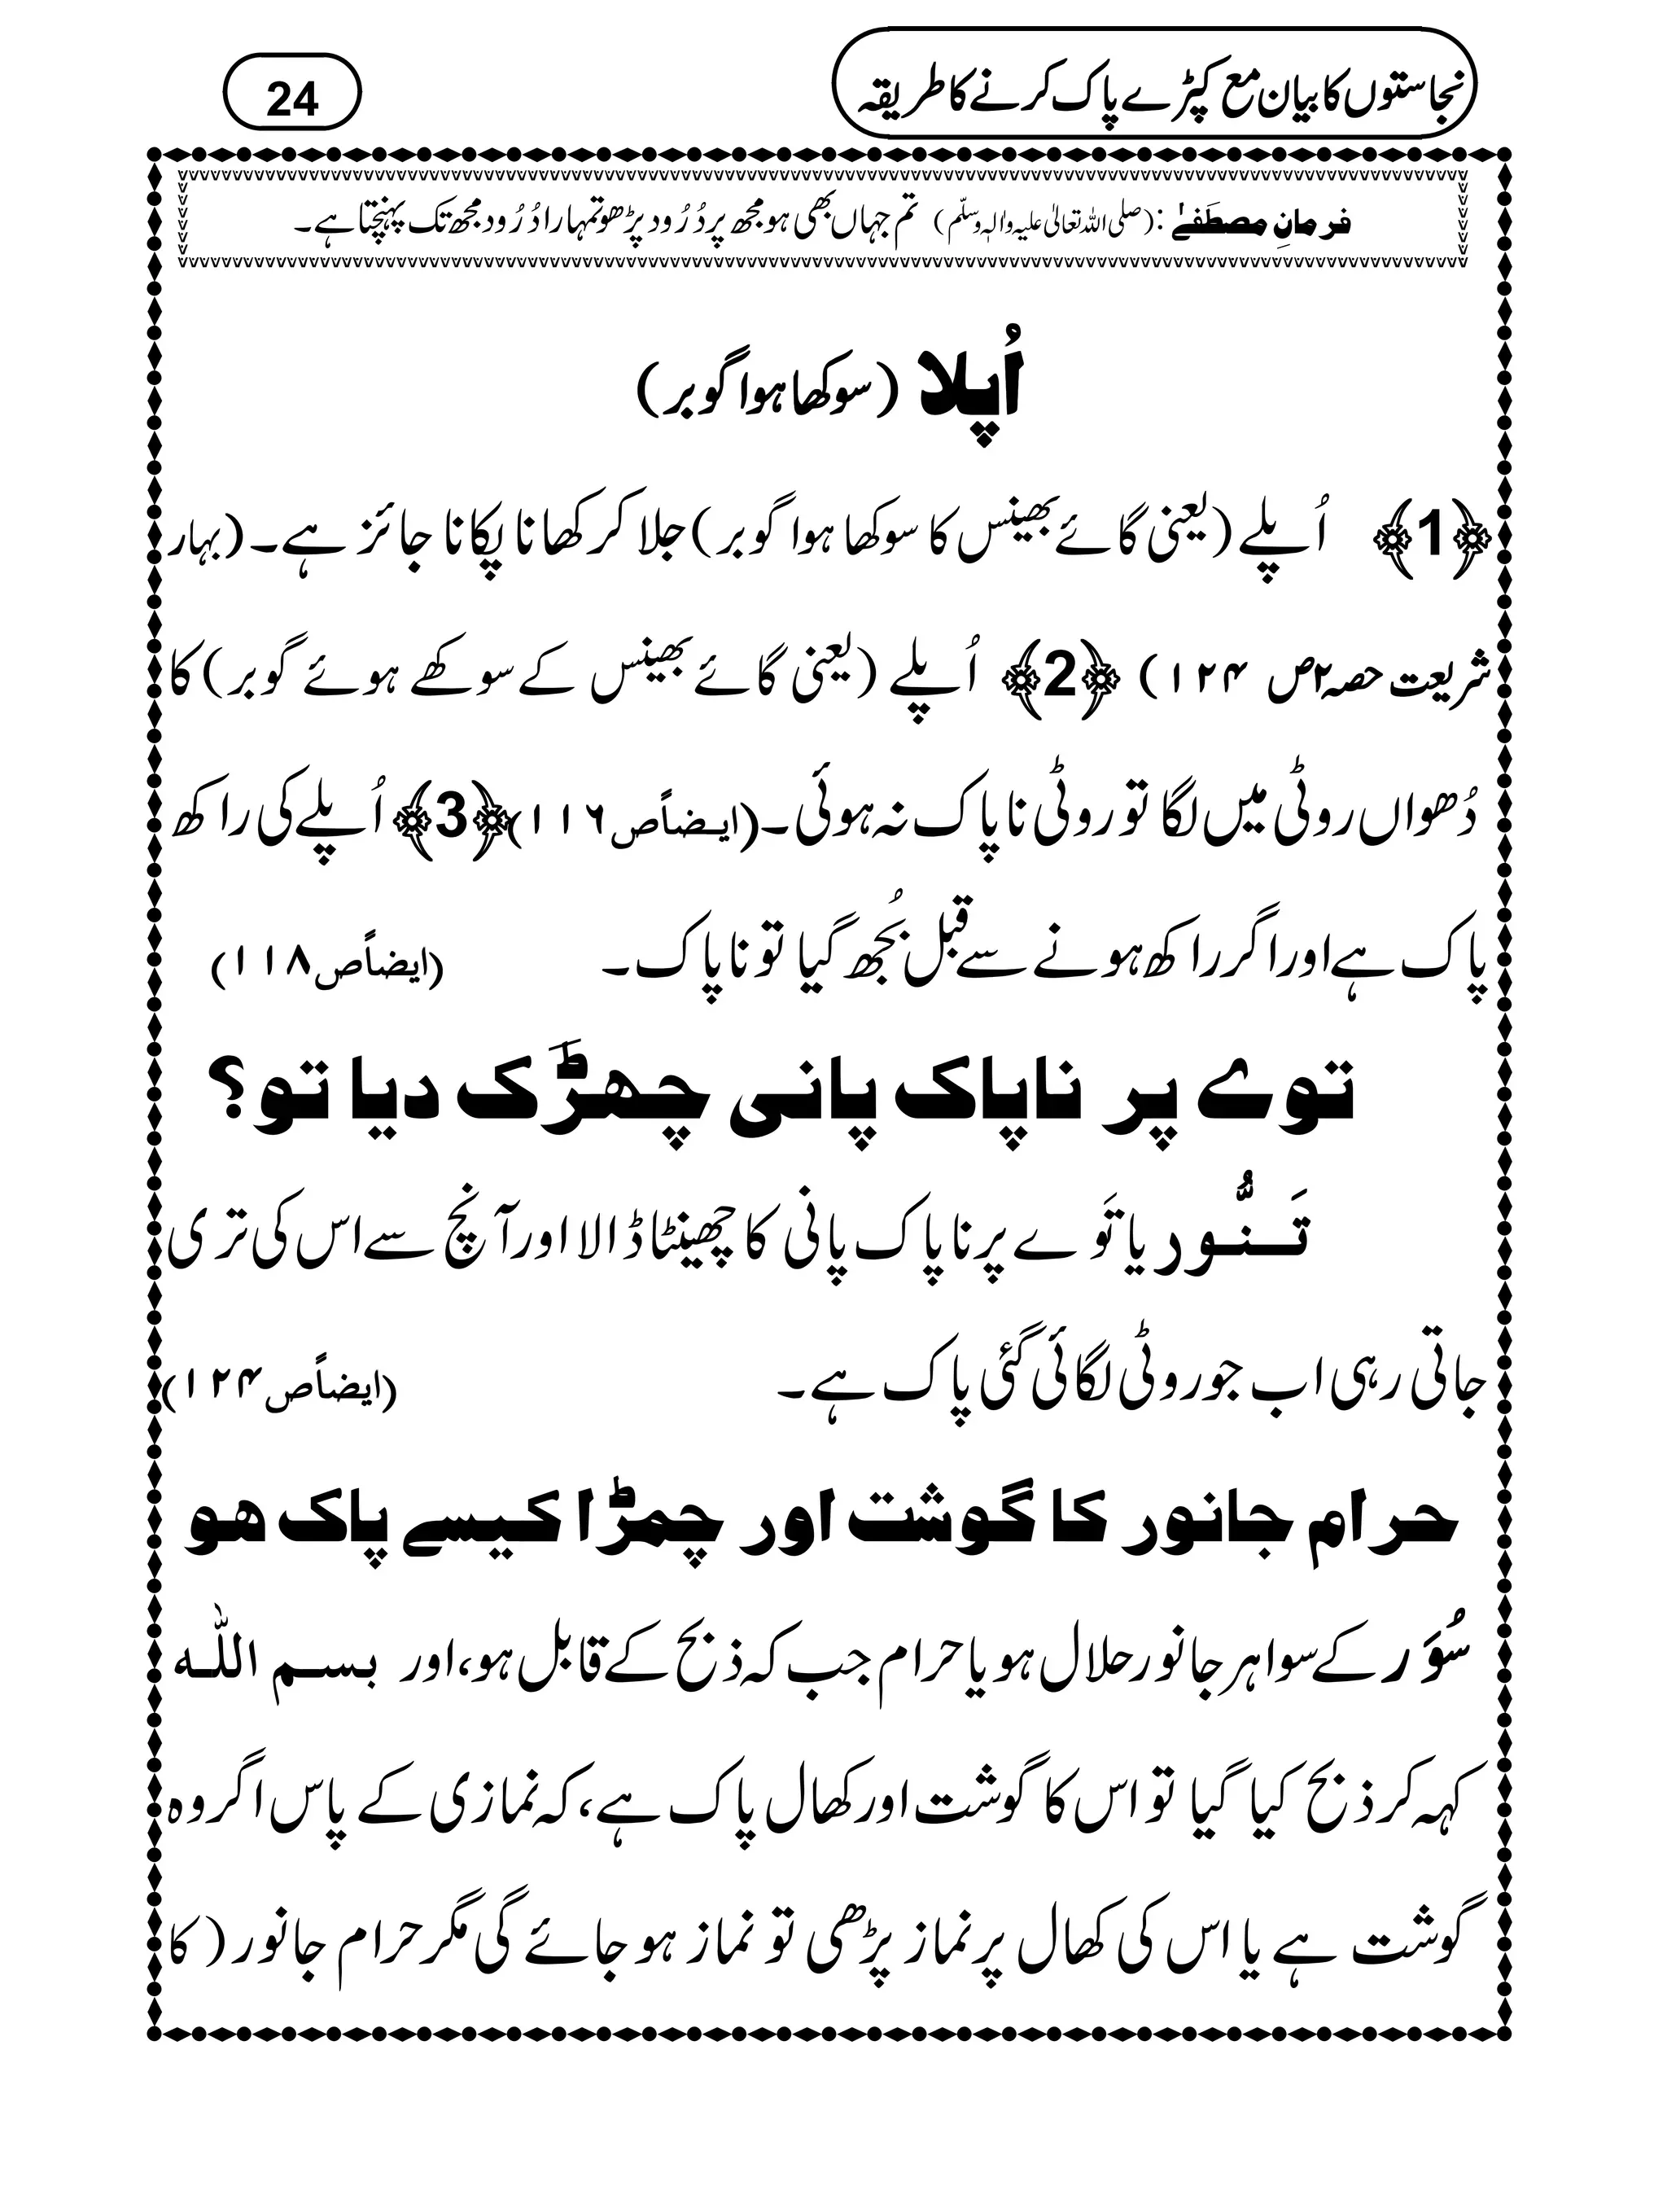 نجاستوں کا بیان مع کپڑے پاک کرنے کا طریقہ
24
فرمانِ مصطَفٰے :(صلی اللہ تعالیٰ علیہ واٰلہٖ وسلّم) تم جہاں بھی ہو مجھ پر دُرُود پڑھو تمہارا دُرُود مجھ تک پہنچتا ہے۔
اُپلا (سوکھا ہوا گوبر)
﴿1﴾ اُپلے (یعنی گائے بھینس کا سوکھا ہوا گوبر) جلا کر کھانا پکانا جائز ہے۔ (بہار
شریعت حصہ ۲ ص ۱۲۴) ﴿2﴾ اُپلے (یعنی گائے بھینس کے سوکھے ہوئے گوبر) کا
دُھواں روٹی میں لگا تو روٹی ناپاک نہ ہوئی۔ (ایضاً ص ۱۱۶) ﴿3﴾ اُپلے کی راکھ
پاک ہے اور اگر راکھ ہونے سے قبل بُجھ گیا تو ناپاک۔ (ایضاً ص ۱۱۸)
توے پر ناپاک پانی چھڑَک دیا تو؟
تَنُّور یا تَوے پر ناپاک پانی کا چھینٹا ڈالا اور آنچ سے اس کی تری
جاتی رہی اب جو روٹی لگائی گئی پاک ہے۔ (ایضاً ص ۱۲۴)
حرام جانور کا گوشت اور چمڑا کیسے پاک ھو
سُوَر کے سوا ہر جانور حلال ہو یا حرام جب کہ ذبح کے قابل ہو، اور بسم اللّٰہ
کہہ کر ذبح کیا گیا تو اس کا گوشت اور کھال پاک ہے، کہ نمازی کے پاس اگر وہ
گوشت ہے یا اس کی کھال پر نماز پڑھی تو نماز ہو جائے گی مگر حرام جانور (کا